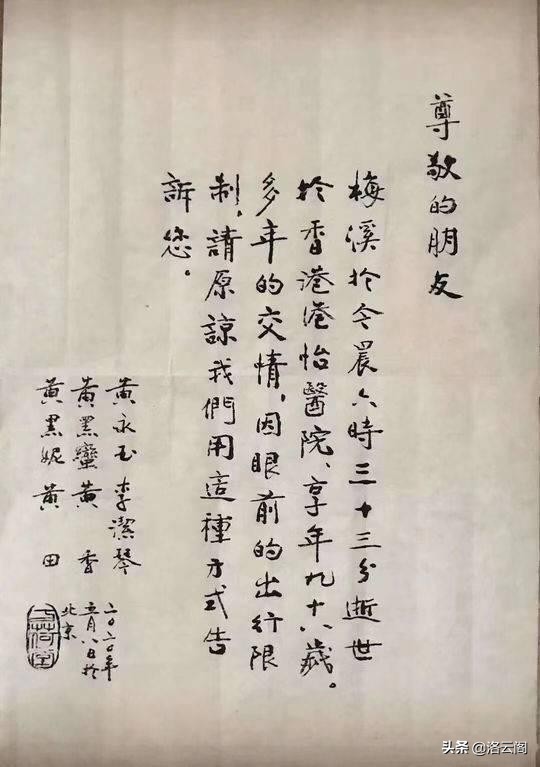 尊敬的朋友
梅溪於今晨六時三十三分逝世
於香港港怡醫院、享年九十六歲。
多年的交情，因眼前的出行限
制，請原諒我們用這種方式告
訴您。
黃永玉 李潔琴
黃黑蠻 黃香
黃黑妮 黃田
二〇二〇年
五月八日於
北京
头条 @洛云阁